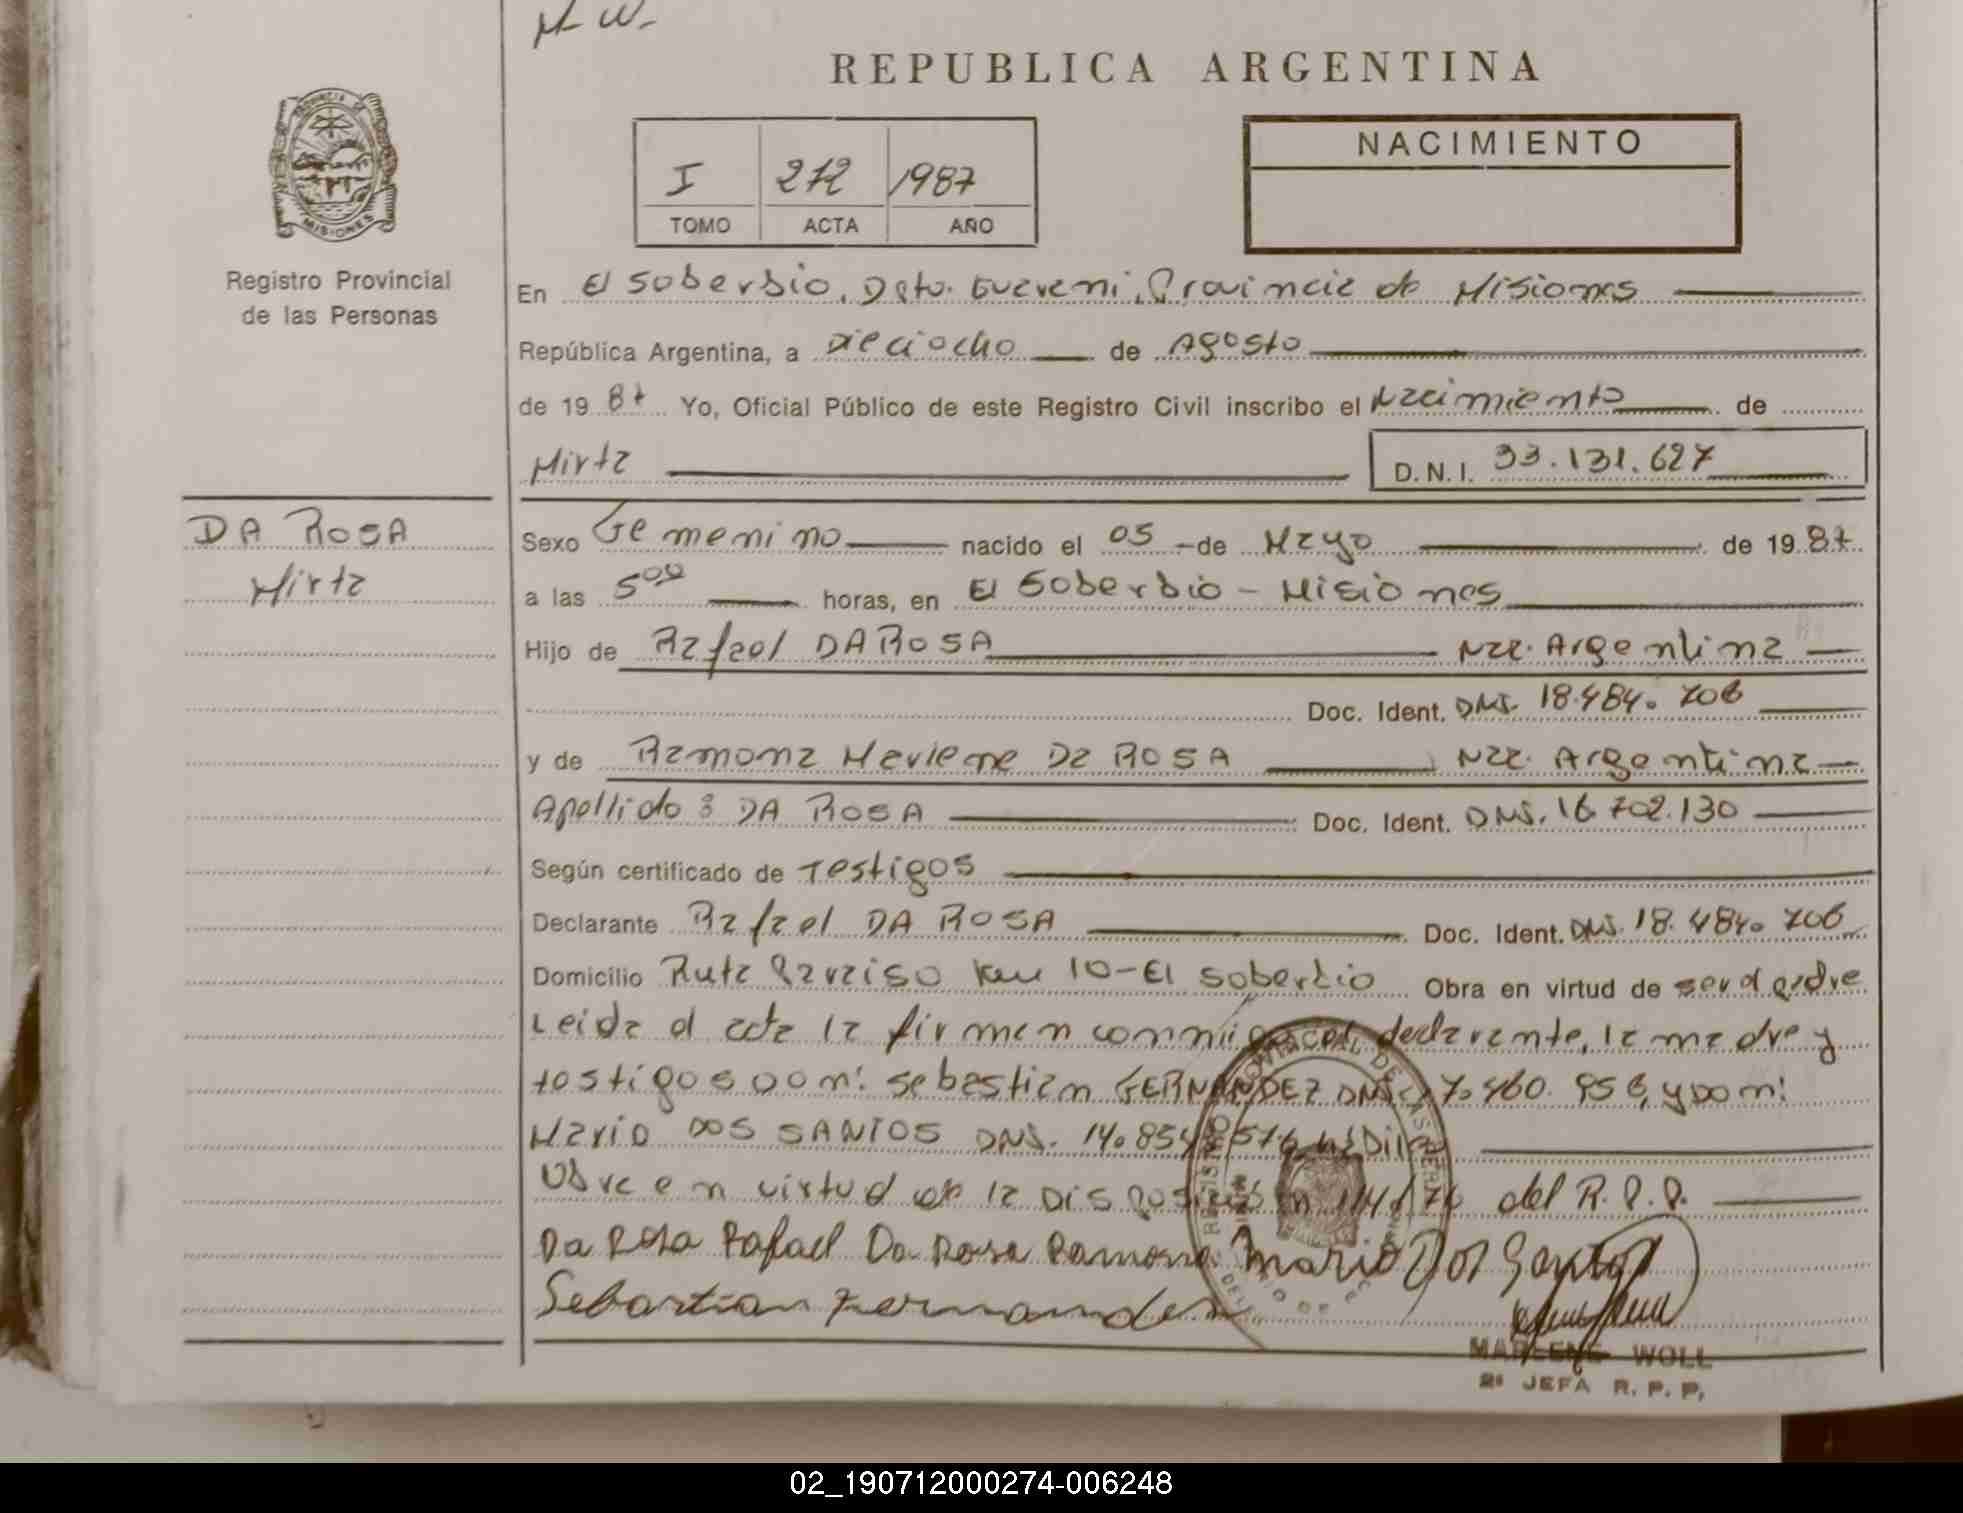 M W-
REPUBLICA ARGENTINA
PROVINCIA DE
MISIONES
I 212 1987
TOMO ACTA AÑO
NACIMIENTO
Registro Provincial
de las Personas
En El Soberbio, Dpto. Guarani, Provincia de Misiones
República Argentina, a Dieciocho de Agosto
de 19 87 Yo, Oficial Público de este Registro Civil inscribo el Nacimiento de
Mirta D.N.I. 33.131.627
DA ROSA
Mirta
Sexo Femenino nacido el 05 - de Mayo de 19 87
a las 5 00 horas, en El Soberbio - Misiones
Hijo de Rafael DA ROSA Nac. Argentina
Doc. Ident. DNI. 18.484.706
y de Ramona Marlene Da ROSA Nac. Argentina
Apellido: DA ROSA Doc. Ident. DNI. 16.702.130
Según certificado de Testigos
Declarante Rafael DA ROSA Doc. Ident. DNI. 18.484.706
Domicilio Ruta Paraiso Km 10 - El Soberbio Obra en virtud de ser el padre
Leida el acta la firman conmigo el declarante, la madre y
testigos Don: Sebastian FERNANDEZ DNI. 7.460.956, y Don:
Mario DOS SANTOS DNI. 14.854.576
Obra en virtud de la Disposición 114/76 del R.P.P.
Da Rosa Rafael Da Rosa Ramona Mario Dos Santos
Sebastian Fernandez
MARLENE WOLL
2ª JEFA R. P. P.
02_190712000274-006248